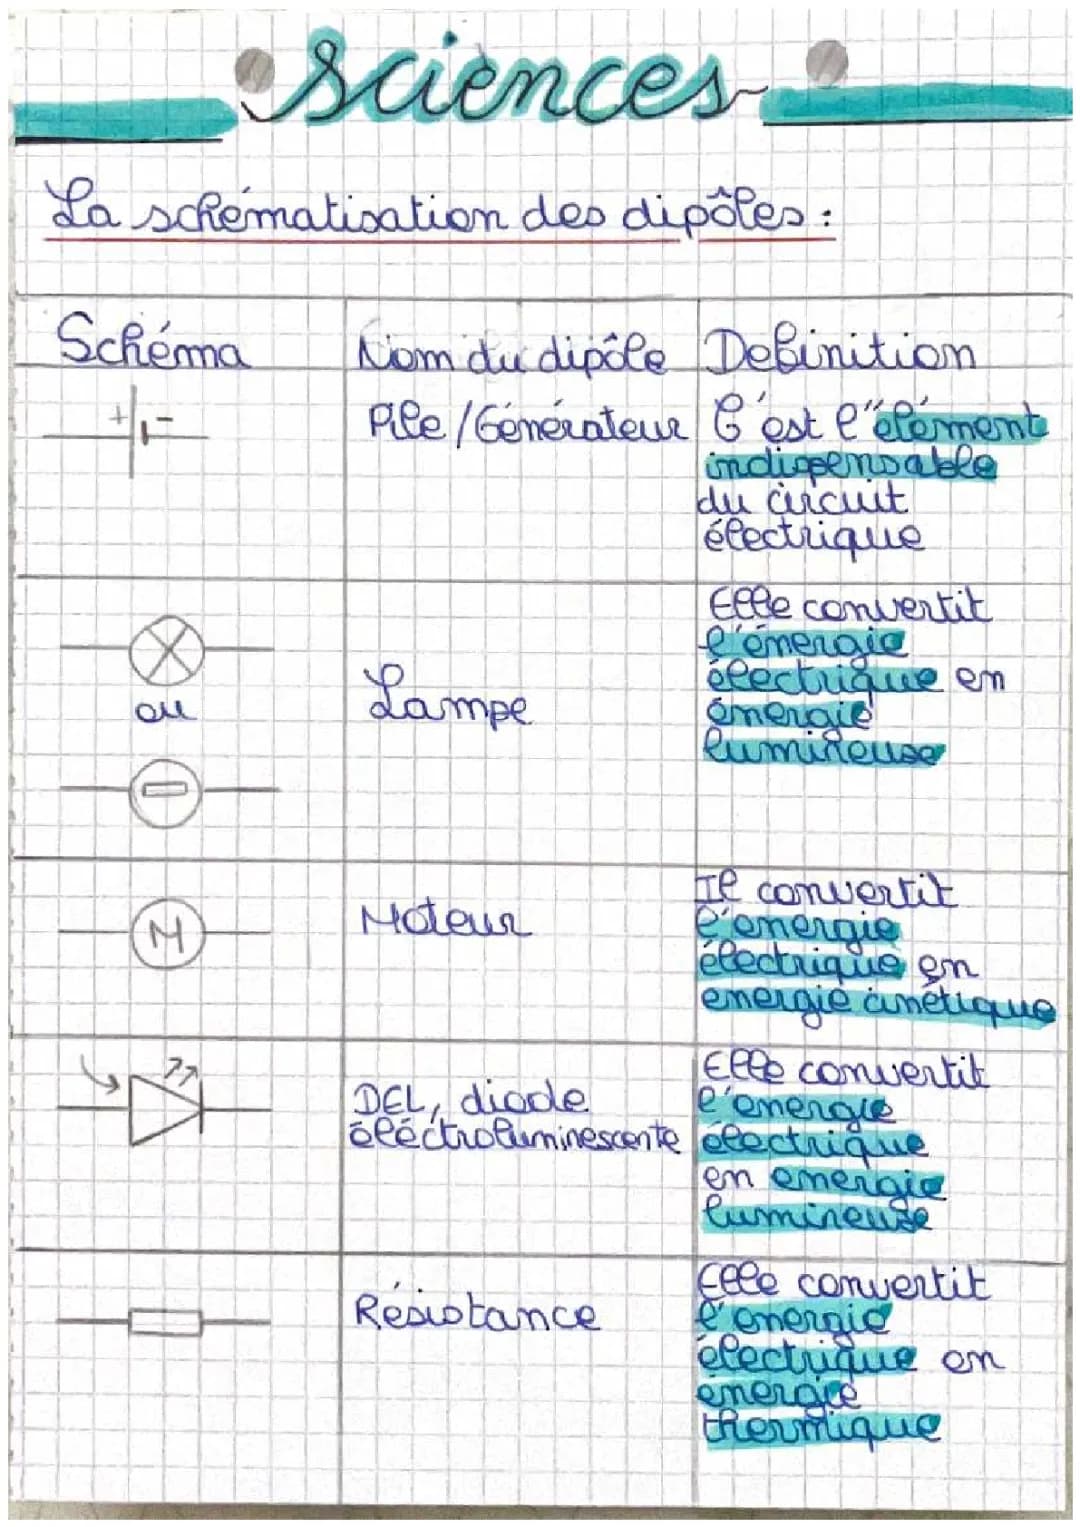 Sciences
La schématisation des dipôles :
Schéma
Nom du dipôle
Définition
+ -
Pile / Générateur
C'est l'élément
indispensable
du circuit
électrique
ou
Lampe
Elle convertit
l'énergie
électrique en
énergie
lumineuse
M
Moteur
Il convertit
l'énergie
électrique en
énergie cinétique
DEL, diode
éléctroluminescente
Elle convertit
l'énergie
électrique
en énergie
lumineuse
Résistance
Elle convertit
l'énergie
électrique en
énergie
thermique